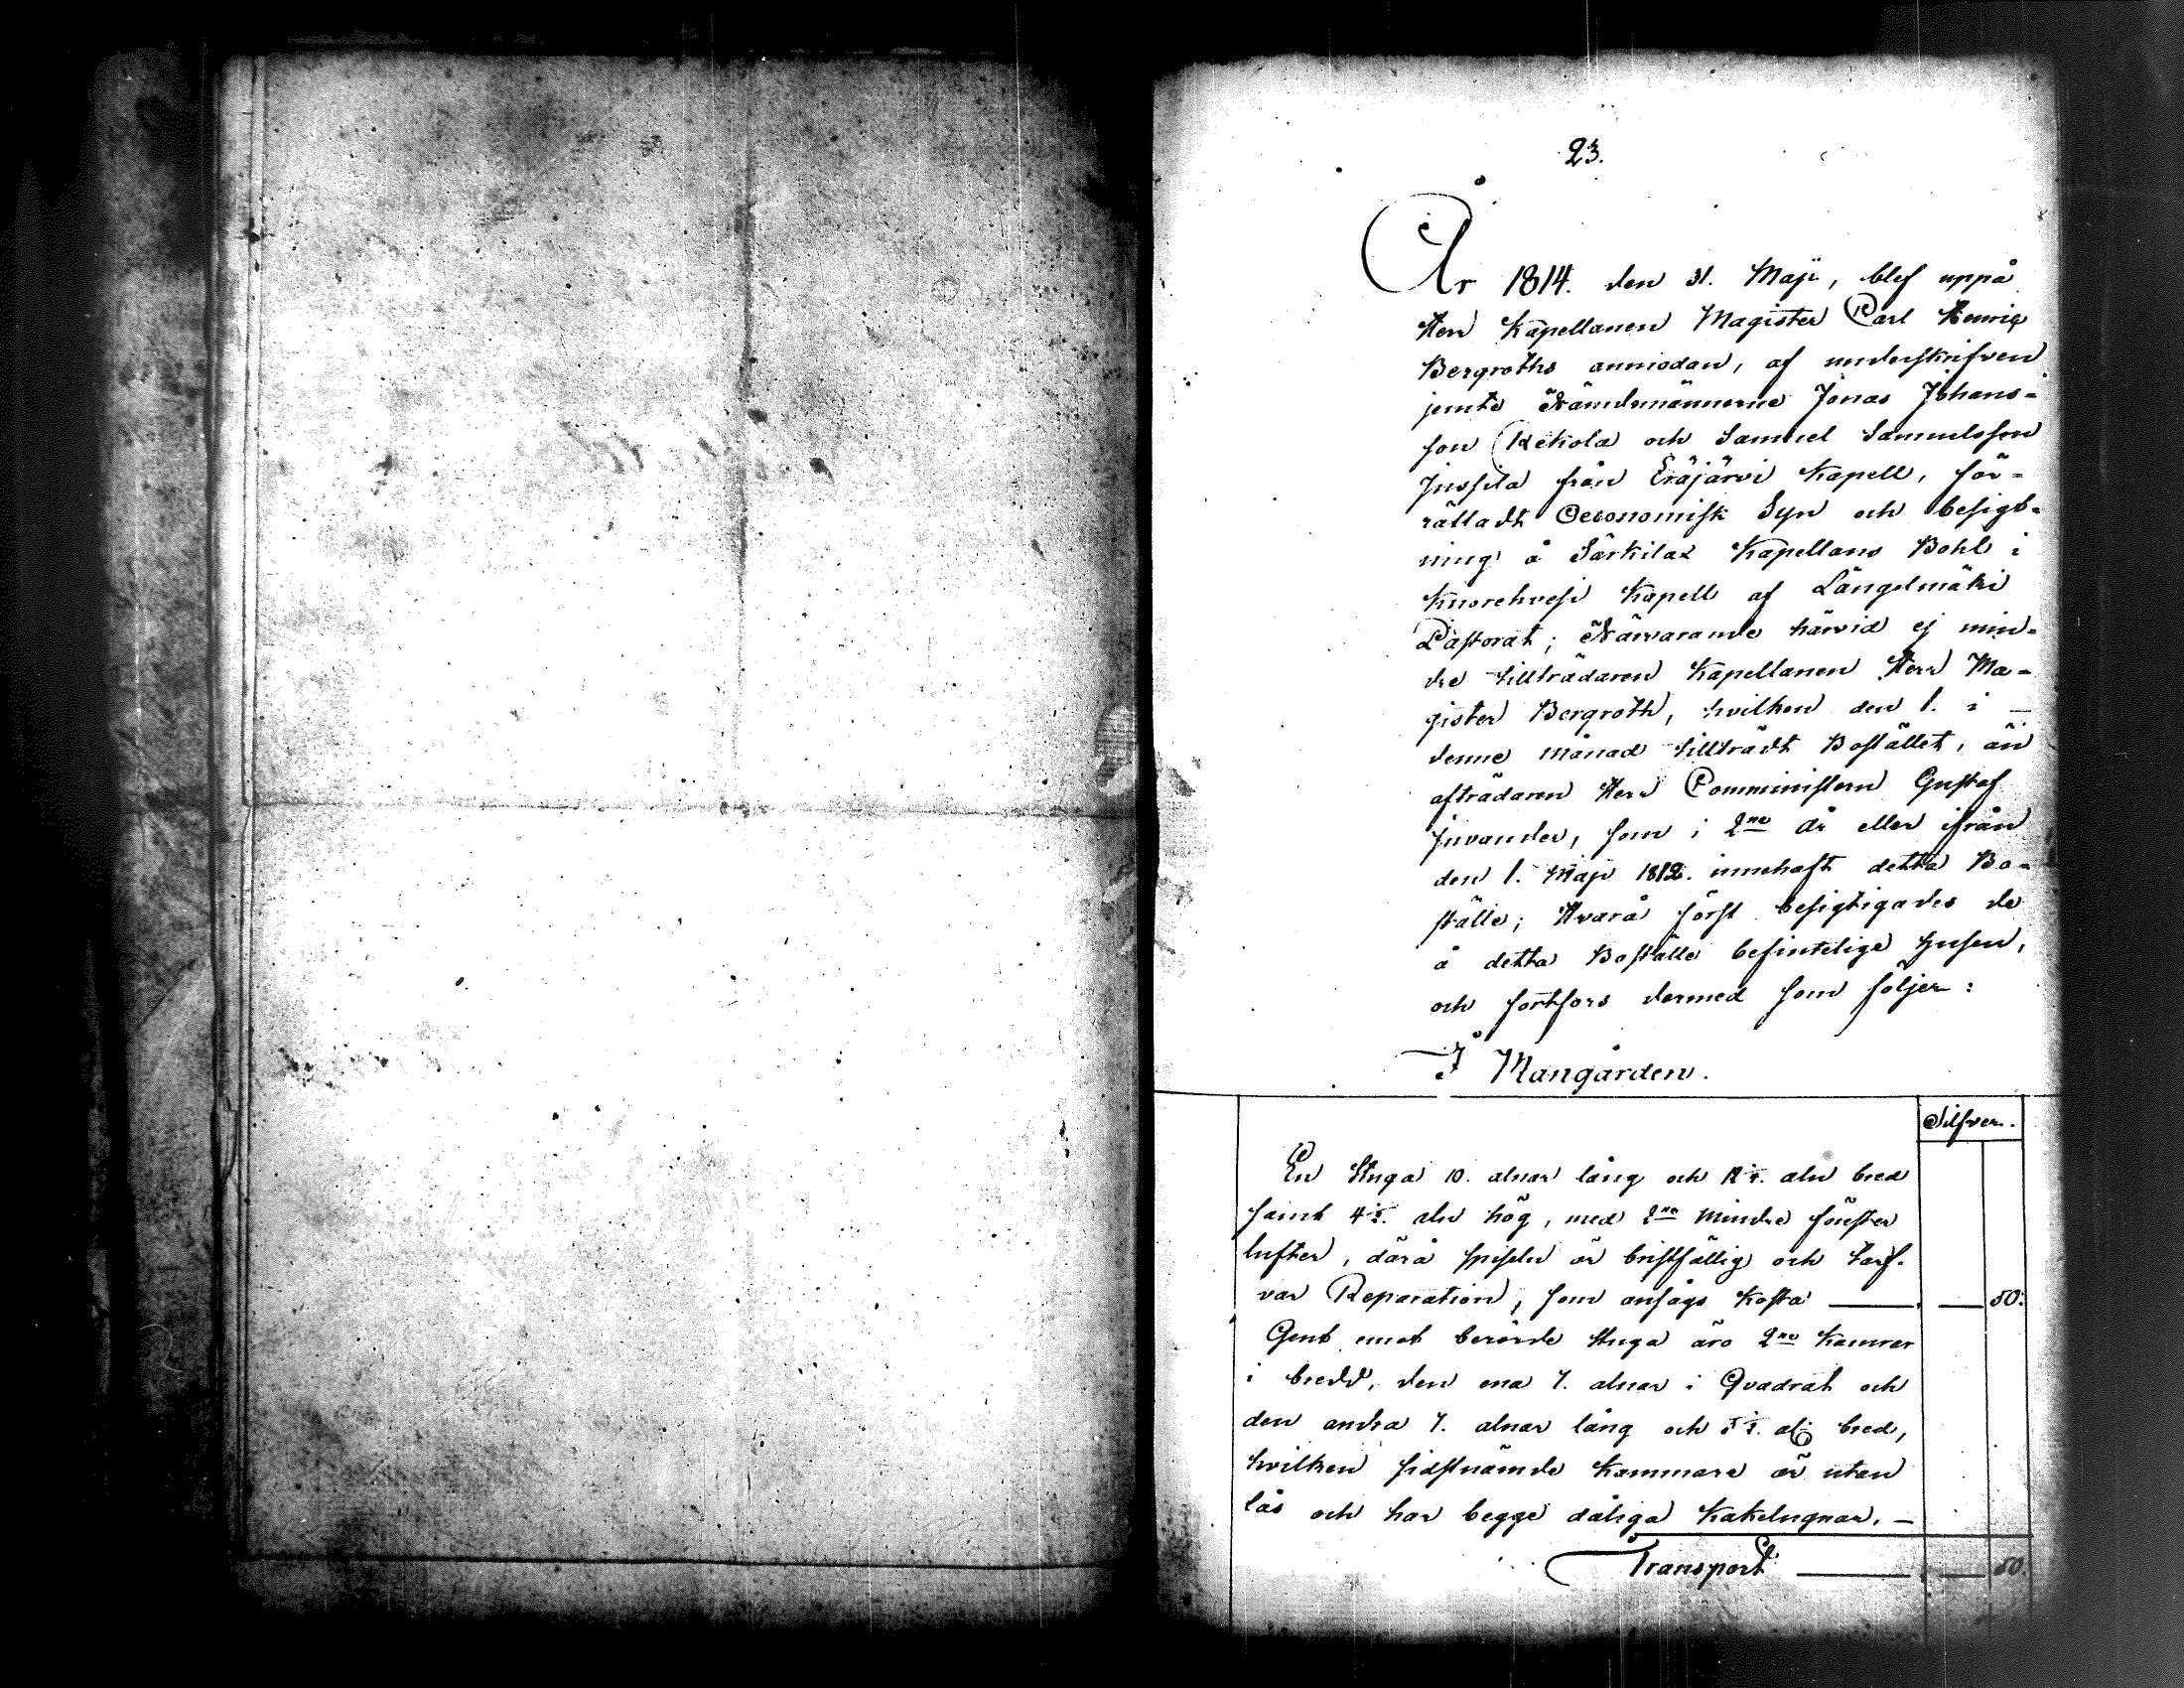 23.
År 1814. den 31. Maji, blef uppå
Herr Kapellanen Magister Carl Henric
Bergroths anmodan, af underskrifven
jemte Nämndemännerne Jonas Johans-
son Rekola och Samuel Samuelsson
Jussila från Eräjärvi Kapell, för-
rättadt Oeconomisk Syn och besigt-
ning å Särkilax Kapellans Bohl i
Kuorehvesi Kapell af Längelmäki
Pastorat; Närvarande härvid ej min-
dre tillträdaren Kapellanen Herr Ma-
gister Bergroth, hvilken den 1. i
denne månad tillträdt Bostället, än
afträdaren Herr Comministern Gustaf
Juvander, som i 2ne år eller ifrån
den 1. Maji 1812. innehaft detta Bo-
ställe; Hvarå först besigtigades de
å detta Boställe befintelige husen,
och fortfors dermed som följer:
I Mangården.
Silfver.
En Stuga 10. alnar lång och aln bred
samt 4½. aln hög, med 2ne mindre fönster
lufter, därå spiseln är bristfällig och tarf-
var Reparation, som ansågs kosta — — 50.
Gent emot berörde Stuga äro 2ne Kamrar
i bredd, den ena 7. alnar i Qvadrat och
den andra 7. alnar lång och al: bred,
hvilken sidstnämde Kammare är utan
lås och har begge dåliga Kakelugnar. —
Transport — — 50.